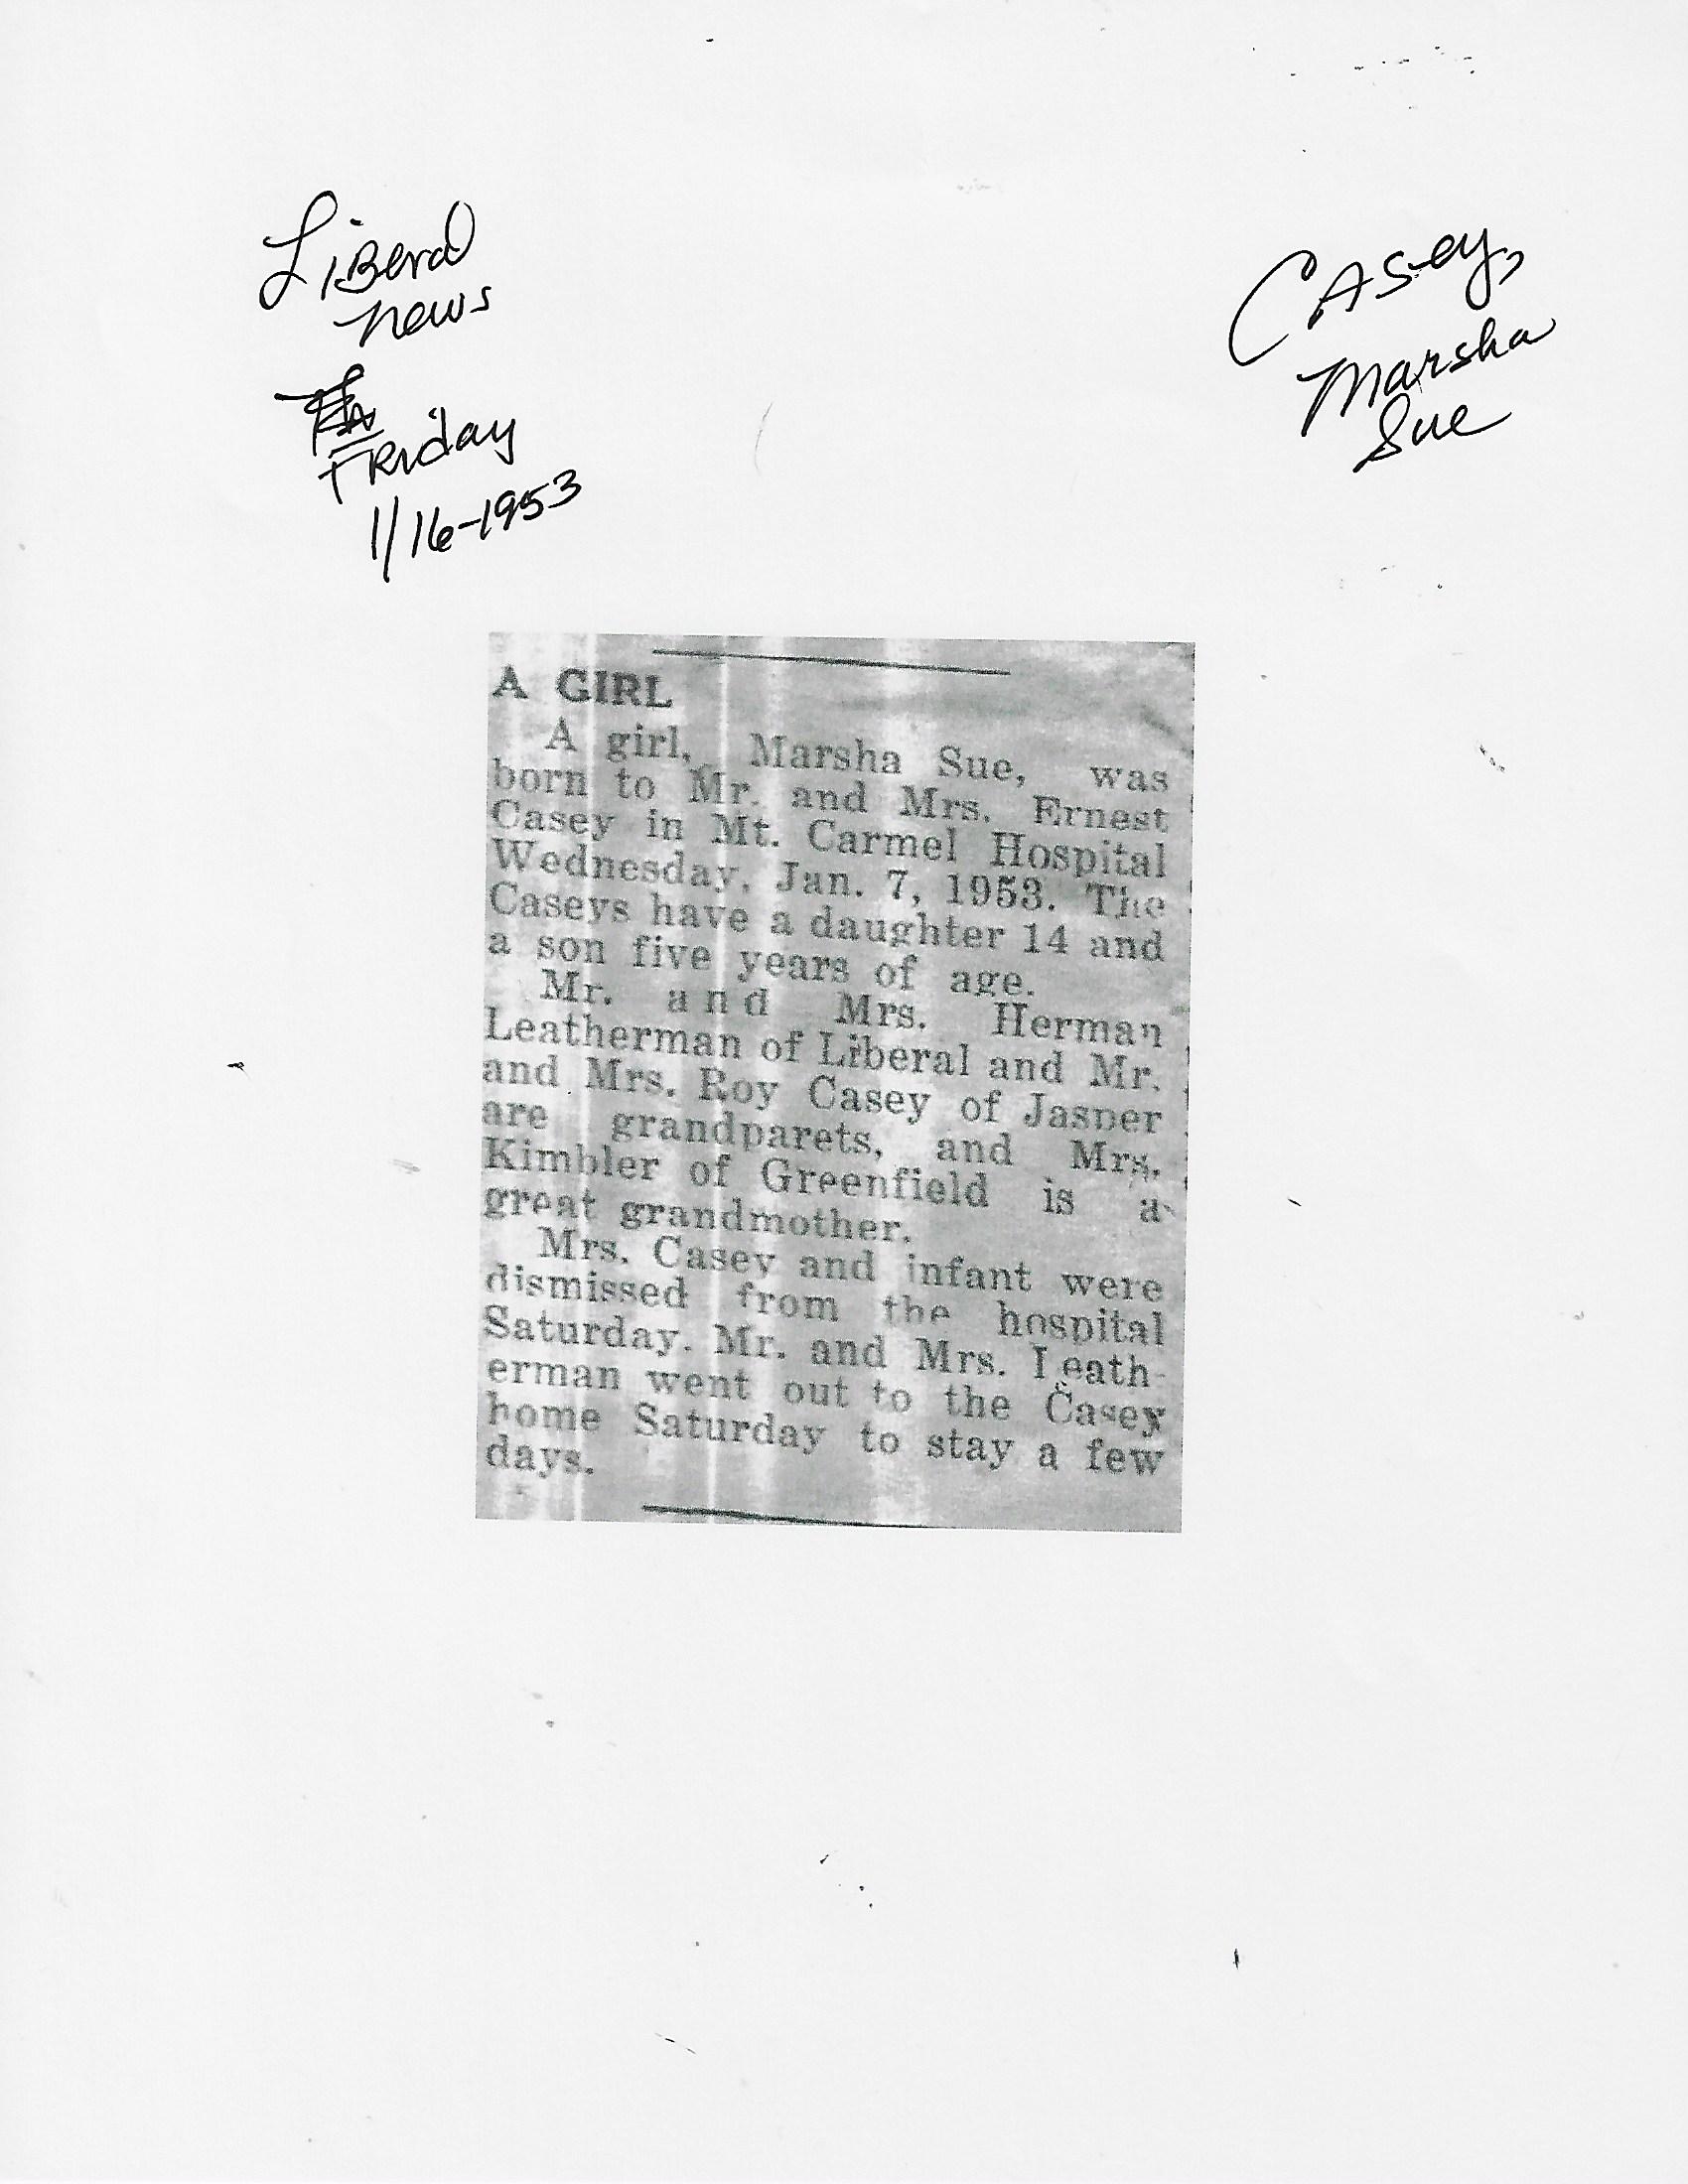 Liberal
News
Friday
1/16-1953
Casey,
Marsha
Sue
A GIRL
A girl, Marsha Sue, was
born to Mr. and Mrs. Ernest
Casey in Mt. Carmel Hospital
Wednesday, Jan. 7, 1953. The
Caseys have a daughter 14 and
a son five years of age.
Mr. and Mrs. Herman
Leatherman of Liberal and Mr.
and Mrs. Roy Casey of Jasper
are grandparets, and Mrs.
Kimbler of Greenfield is a
great grandmother.
Mrs. Casey and infant were
dismissed from the hospital
Saturday. Mr. and Mrs. Leath-
erman went out to the Casey
home Saturday to stay a few
days.